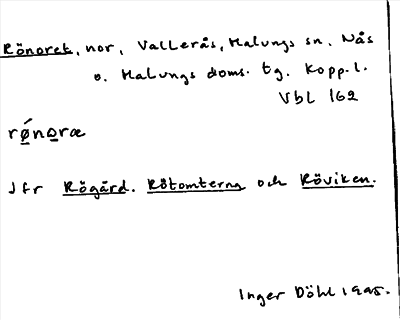 Rönoret, nor, Vallerås, Malungs sn. Nås
o. Malungs doms. tg. Kopp. l.
Vbl 162
rǿnoræ
Jfr Rögård. Rötomterna och Röviken.
Inger Döhl 1995.